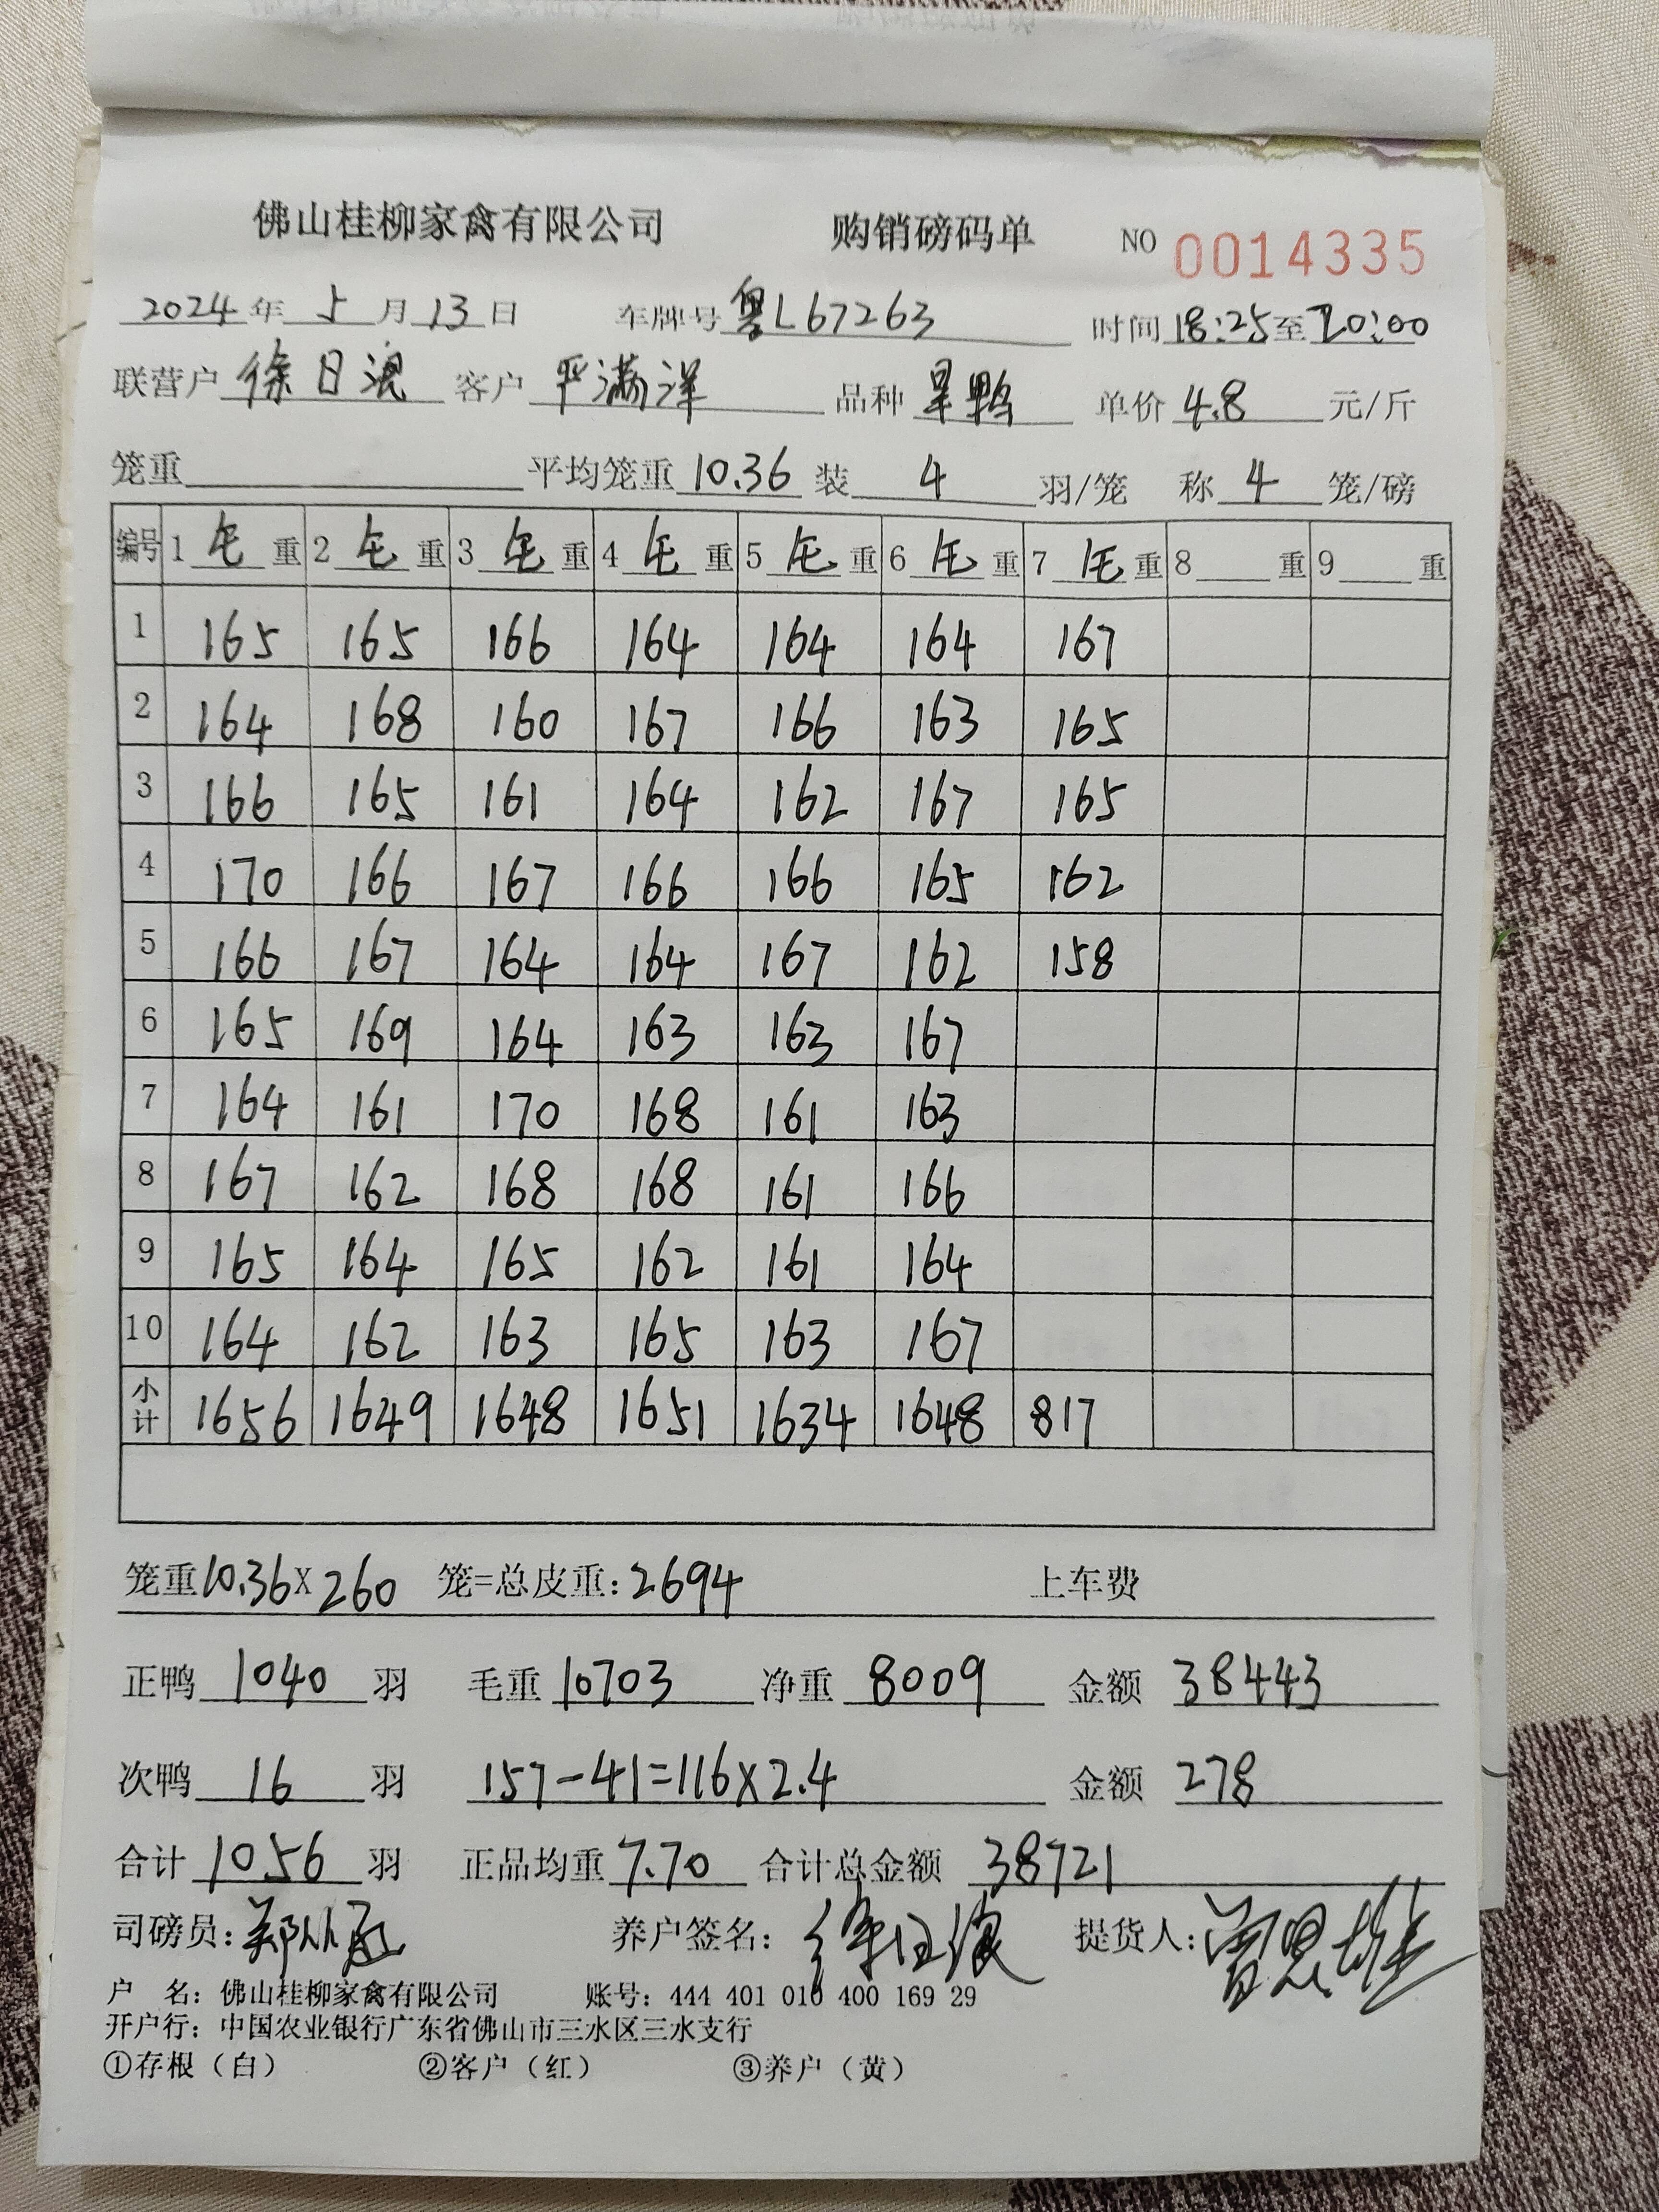 佛山桂柳家禽有限公司 购销磅码单 NO 0014335
2024年 5月 13日 车牌号 粤L67263 时间 18:25至20:00
联营户 徐日浪 客户 严满洋 品种 旱鸭 单价 4.8 元/斤
笼重 平均笼重 10.36 装 4 羽/笼 称 4 笼/磅
编号 1 毛 重 2 毛 重 3 毛 重 4 毛 重 5 毛 重 6 毛 重 7 毛 重 8 重 9 重
1 165 165 166 164 164 164 167
2 164 168 160 167 166 163 165
3 166 165 161 164 162 167 165
4 170 166 167 166 166 165 162
5 166 167 164 164 167 162 158
6 165 169 164 163 163 167
7 164 161 170 168 161 163
8 167 162 168 168 161 166
9 165 164 165 162 161 164
10 164 162 163 165 163 167
小计 1656 1649 1648 1651 1634 1648 817
笼重10.36X260 笼=总皮重:2694 上车费
正鸭 1040 羽 毛重 10703 净重 8009 金额 38443
次鸭 16 羽 157-41=116X2.4 金额 278
合计 1056 羽 正品均重 7.70 合计总金额 38721
司磅员: 养户签名: 徐日浪 提货人: 曾思雄
户 名: 佛山桂柳家禽有限公司 账号: 444 401 010 400 169 29
开户行: 中国农业银行广东省佛山市三水区三水支行
①存根（白） ②客户（红） ③养户（黄）